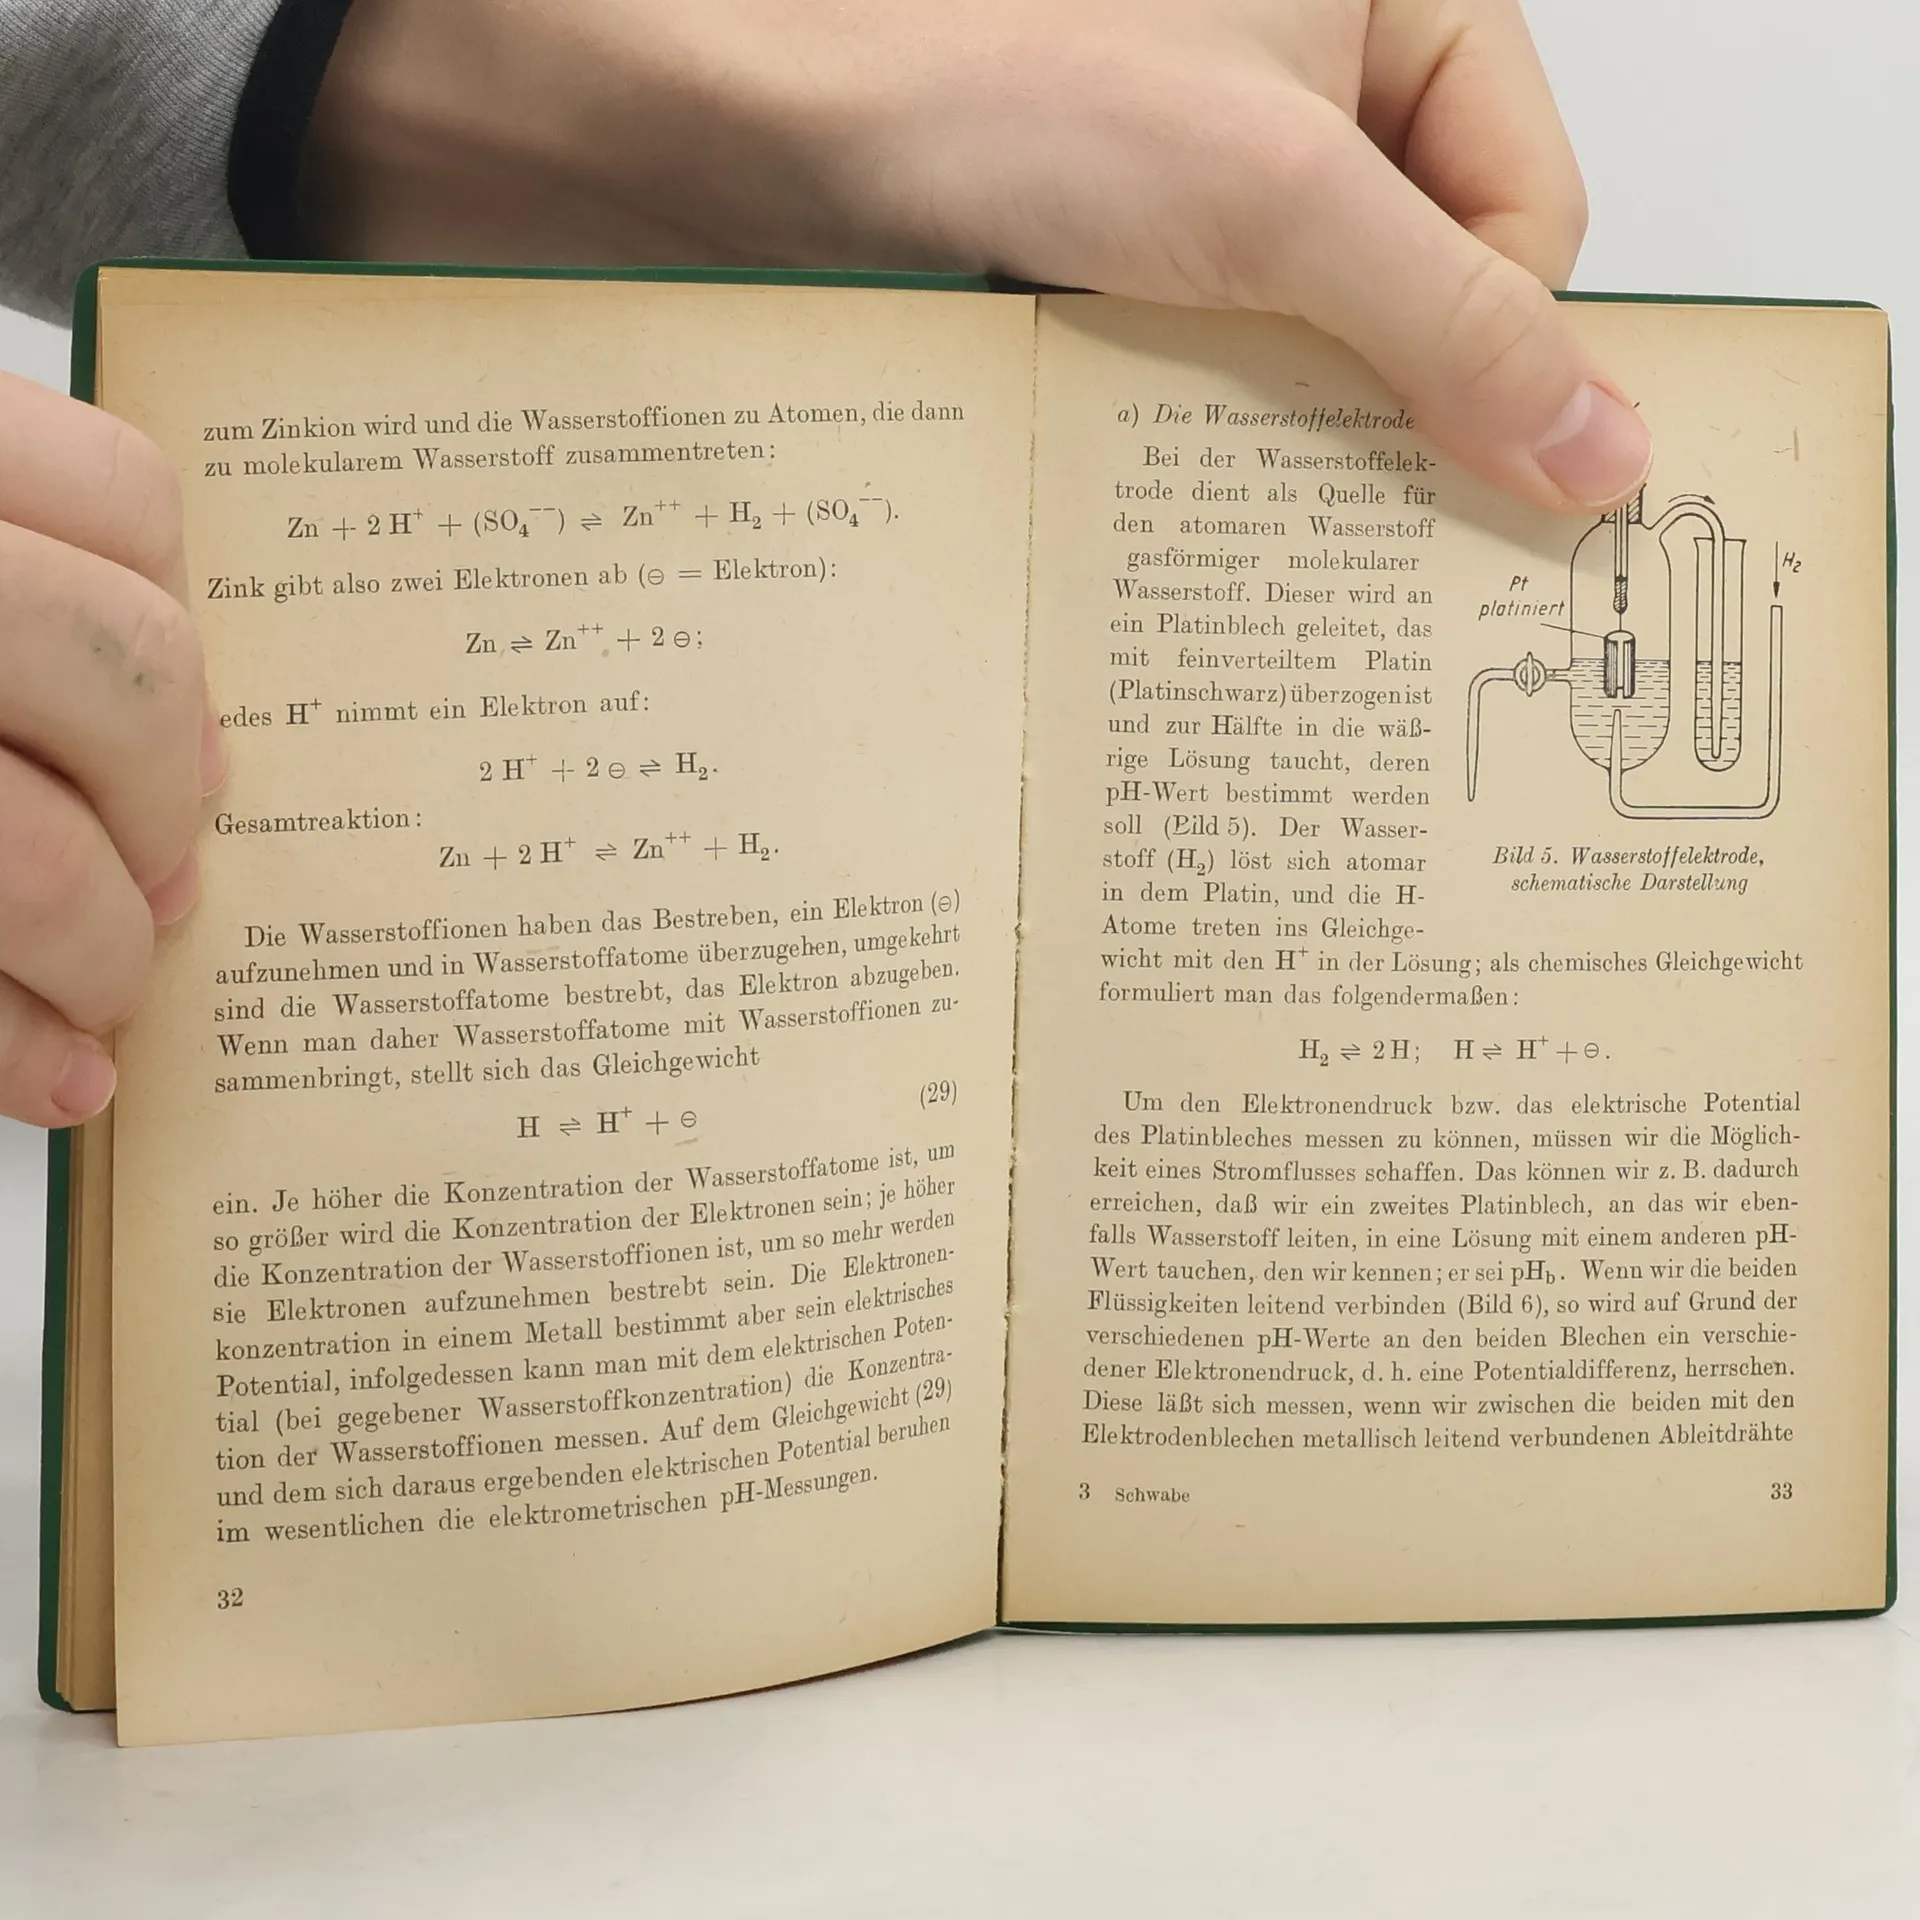 zum Zinkion wird und die Wasserstoffionen zu Atomen, die dann
zu molekularem Wasserstoff zusammentreten:
Zn + 2 H⁺ + (SO₄⁻⁻) ⇌ Zn⁺⁺ + H₂ + (SO₄⁻⁻).
Zink gibt also zwei Elektronen ab (⊖ = Elektron):
Zn ⇌ Zn⁺⁺ + 2 ⊖;
edes H⁺ nimmt ein Elektron auf:
2 H⁺ + 2 ⊖ ⇌ H₂.
Gesamtreaktion:
Zn + 2 H⁺ ⇌ Zn⁺⁺ + H₂.
Die Wasserstoffionen haben das Bestreben, ein Elektron (⊖)
aufzunehmen und in Wasserstoffatome überzugehen, umgekehrt
sind die Wasserstoffatome bestrebt, das Elektron abzugeben.
Wenn man daher Wasserstoffatome mit Wasserstoffionen zu-
sammenbringt, stellt sich das Gleichgewicht
H ⇌ H⁺ + ⊖ (29)
ein. Je höher die Konzentration der Wasserstoffatome ist, um
so größer wird die Konzentration der Elektronen sein; je höher
die Konzentration der Wasserstoffionen ist, um so mehr werden
sie Elektronen aufzunehmen bestrebt sein. Die Elektronen-
konzentration in einem Metall bestimmt aber sein elektrisches
Potential, infolgedessen kann man mit dem elektrischen Poten-
tial (bei gegebener Wasserstoffkonzentration) die Konzentra-
tion der Wasserstoffionen messen. Auf dem Gleichgewicht (29)
und dem sich daraus ergebenden elektrischen Potential beruhen
im wesentlichen die elektrometrischen pH-Messungen.
32
a) Die Wasserstoffelektrode
Bei der Wasserstoffelek-
trode dient als Quelle für
den atomaren Wasserstoff
gasförmiger molekularer
Wasserstoff. Dieser wird an
ein Platinblech geleitet, das
mit feinverteiltem Platin
(Platinschwarz) überzogen ist
und zur Hälfte in die wäß-
rige Lösung taucht, deren
pH-Wert bestimmt werden
soll (Bild 5). Der Wasser-
stoff (H₂) löst sich atomar
in dem Platin, und die H-
Atome treten ins Gleichge-
wicht mit den H⁺ in der Lösung; als chemisches Gleichgewicht
formuliert man das folgendermaßen:
Pt
platiniert
H₂
Bild 5. Wasserstoffelektrode,
schematische Darstellung
H₂ ⇌ 2 H; H ⇌ H⁺ + ⊖.
Um den Elektronendruck bzw. das elektrische Potential
des Platinbleches messen zu können, müssen wir die Möglich-
keit eines Stromflusses schaffen. Das können wir z. B. dadurch
erreichen, daß wir ein zweites Platinblech, an das wir eben-
falls Wasserstoff leiten, in eine Lösung mit einem anderen pH-
Wert tauchen, den wir kennen; er sei pH_b. Wenn wir die beiden
Flüssigkeiten leitend verbinden (Bild 6), so wird auf Grund der
verschiedenen pH-Werte an den beiden Blechen ein verschie-
dener Elektronendruck, d. h. eine Potentialdifferenz, herrschen.
Diese läßt sich messen, wenn wir zwischen die beiden mit den
Elektrodenblechen metallisch leitend verbundenen Ableitdrähte
3 Schwabe
33